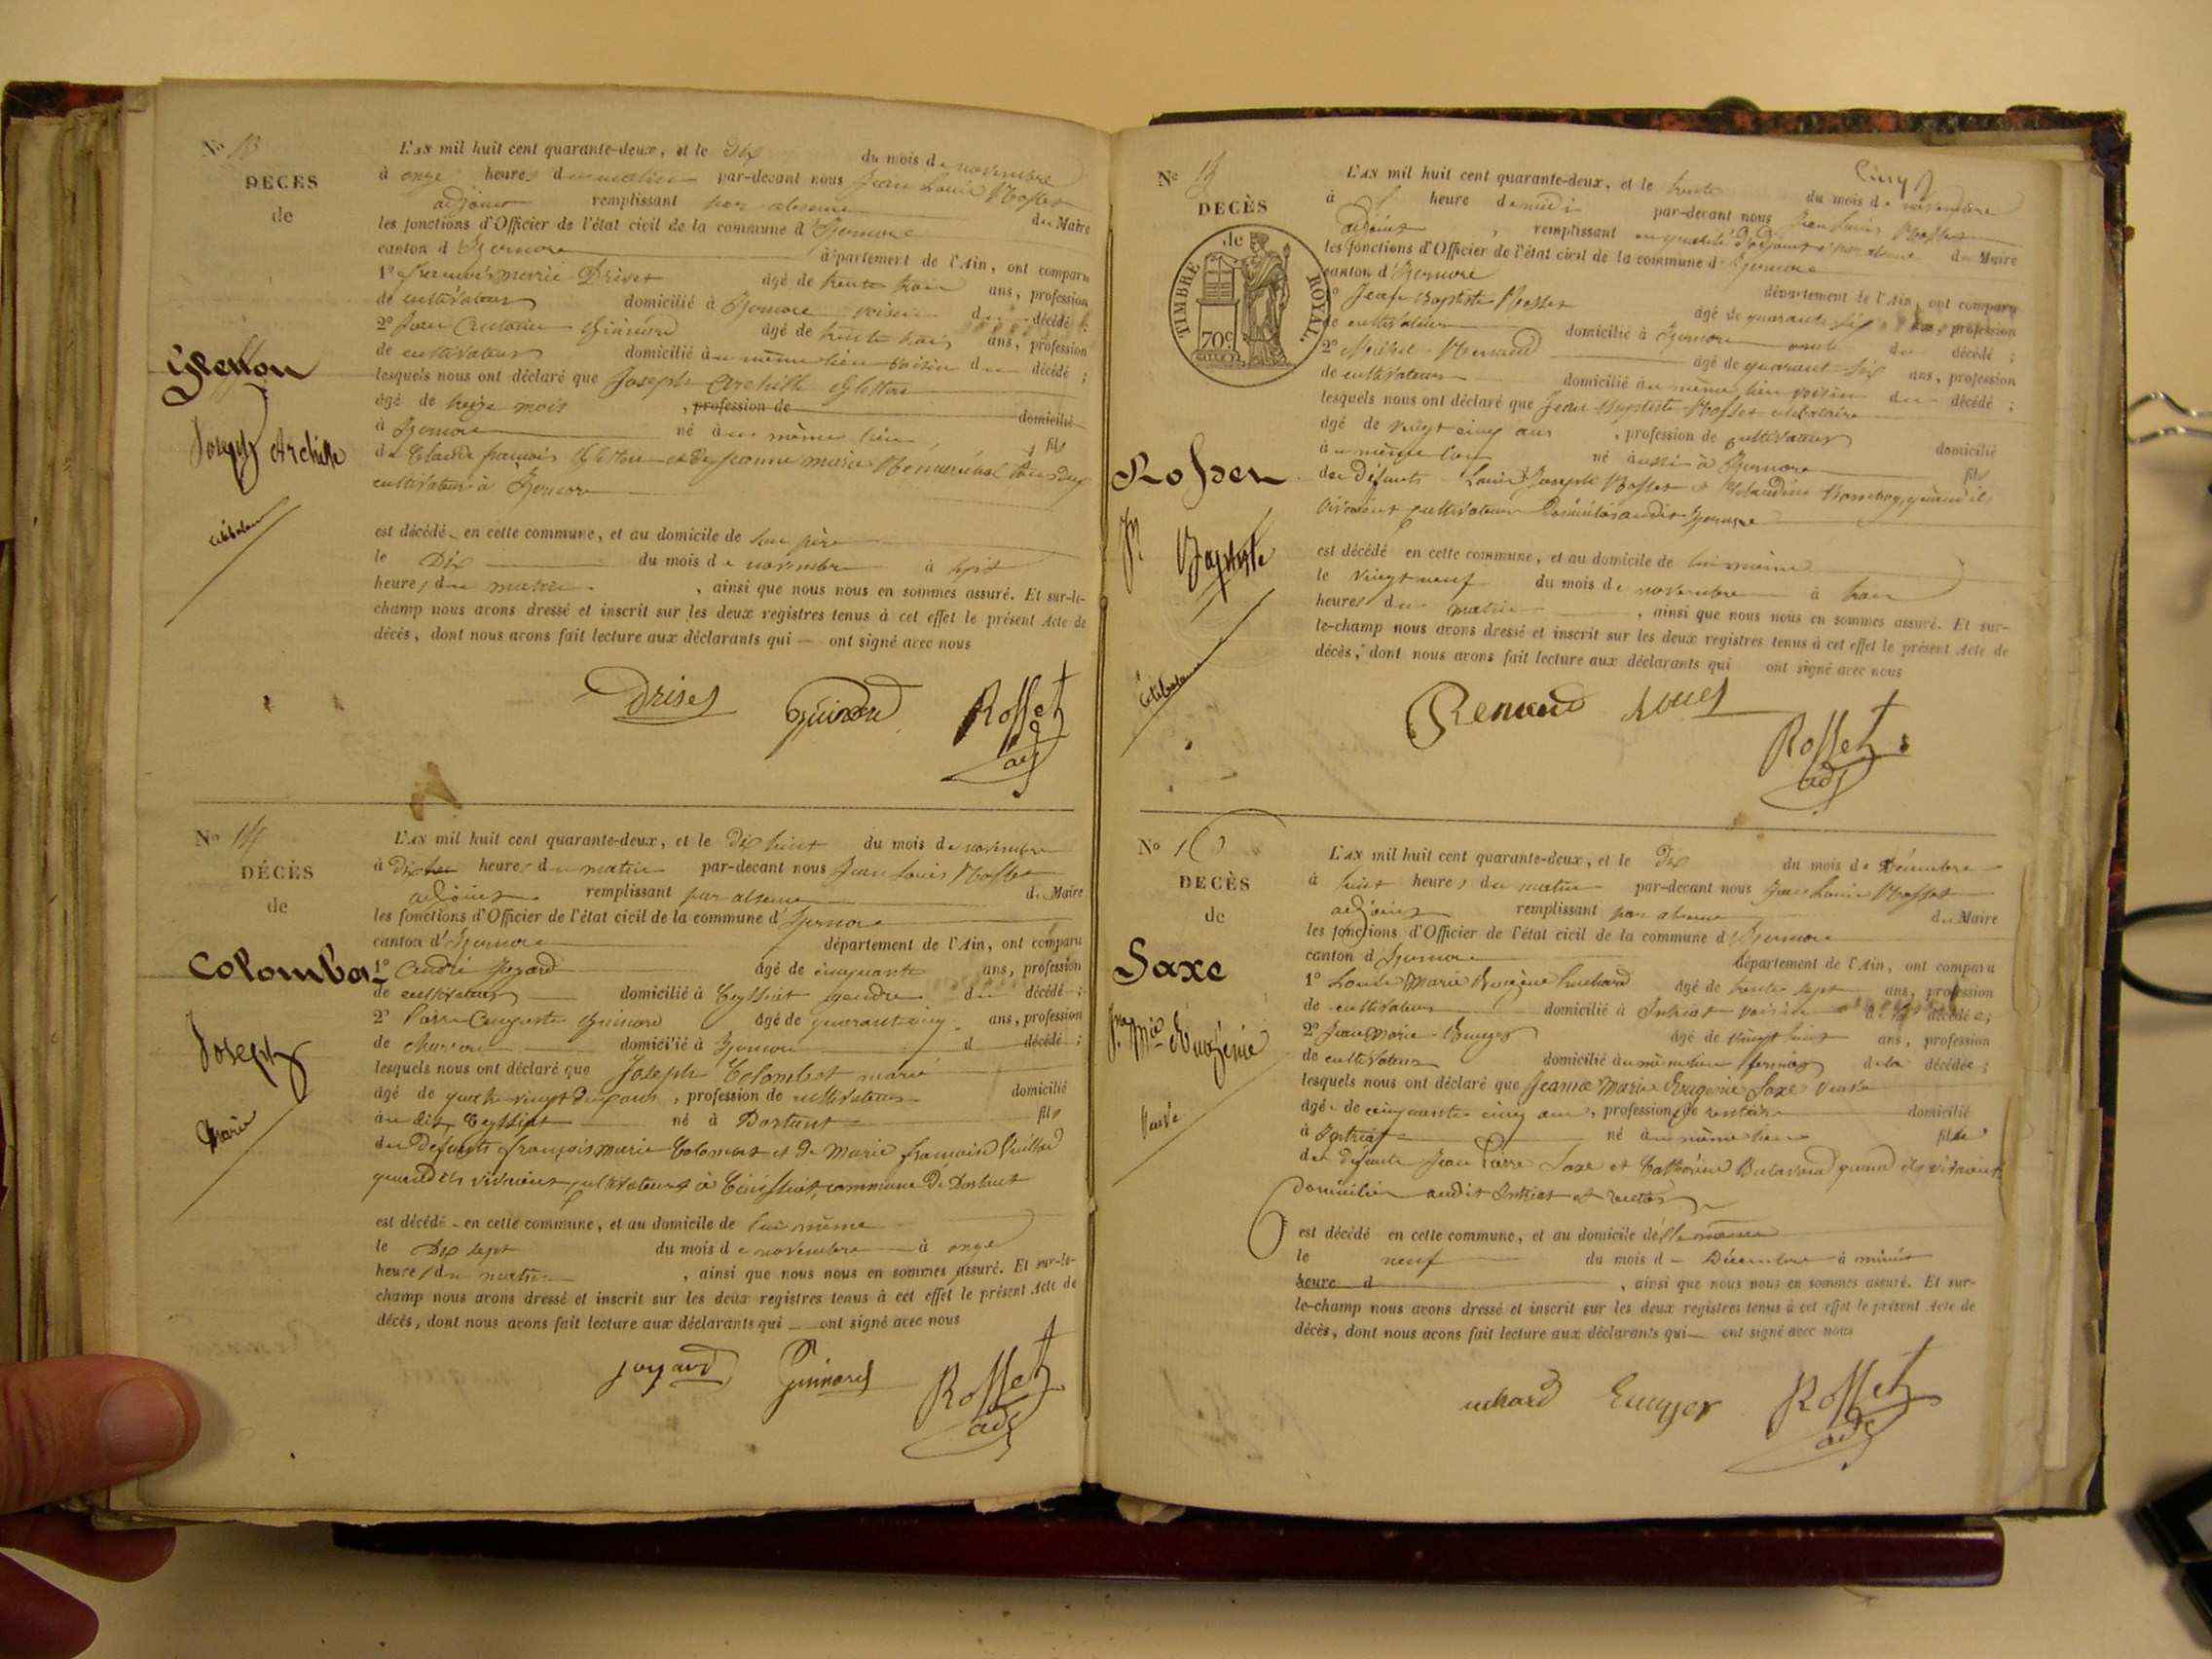 No 13
DECES
de
Joseph Archille
célibataire
L'AN mil huit cent quarante-deux, et le Dix du mois de novembre
à onze heures du matin par-devant nous Jean Louis Rosset
adjoint remplissant par absence du Maire
les fonctions d'Officier de l'état civil de la commune d'
canton d'
département de l'Ain, ont comparu
1° marie Drises âgé de trente trois ans, profession
de cultivateur domicilié à voisin du décédé ;
2° Jean âgé de trente trois ans, profession
de cultivateur domicilié au même lieu voisin du décédé ;
lesquels nous ont déclaré que Joseph Archille
âgé de treize mois , profession de domicilié
à né au même lieu , fils
de Claude françois et de jeanne marie tous deux
cultivateurs à
est décédé en cette commune, et au domicile de son père
le Dix du mois de novembre à sept
heures du matin , ainsi que nous nous en sommes assuré. Et sur-le-
champ nous avons dressé et inscrit sur les deux registres tenus à cet effet le présent Acte de
décès, dont nous avons fait lecture aux déclarants qui — ont signé avec nous
Drises Guinard Rosset
adj
No 14
DÉCÈS
de
Colomba
Joseph
Marié
L'AN mil huit cent quarante-deux, et le Dix huit du mois de novembre
à Dix heures du matin par-devant nous Jean Louis Rosset
adjoint remplissant par absence du Maire
les fonctions d'Officier de l'état civil de la commune d'
canton d' département de l'Ain, ont comparu
1° André Joyard âgé de cinquante ans, profession
de cultivateur domicilié à gendre du décédé ;
2° Pierre Auguste Guinard âgé de quarante cinq ans, profession
de charron domicilié à d décédé ;
lesquels nous ont déclaré que Joseph Colombat marié
âgé de quatre vingt deux ans , profession de cultivateur domicilié
au dit né à Dortant fils
des Defunts françois marie Colombat et De Marie françoise
quand ils vivaient cultivateurs à commune De Dortant
est décédé en cette commune, et au domicile de lui même
le Dix sept du mois de novembre à onze
heures du matin , ainsi que nous nous en sommes assuré. Et sur-le-
champ nous avons dressé et inscrit sur les deux registres tenus à cet effet le présent Acte de
décès, dont nous avons fait lecture aux déclarants qui — ont signé avec nous
joyard Guinard Rosset
adj
No 15
DECÈS
de
TIMBRE ROYAL.
70c
Rosset
Jn Baptiste
Célibataire
L'AN mil huit cent quarante-deux, et le trente du mois de novembre
à heure de midi par-devant nous Jean Louis Rosset
adjoint remplissant du Maire
les fonctions d'Officier de l'état civil de la commune d'
canton d'
département de l'Ain, ont comparu
1° Jean Baptiste Rosset âgé de quarante six profession
de cultivateur domicilié à oncle du décédé ;
2° Michel Renaud âgé de quarante six ans, profession
de cultivateur domicilié au même lieu voisin du décédé ;
lesquels nous ont déclaré que Jean Baptiste Rosset célibataire
âgé de vingt cinq ans , profession de cultivateur domicilié
au même lieu né aussi à fils
des Défunts Louis Joseph Rosset et Claudine quand ils
vivaient cultivateurs Domiciliés audit
est décédé en cette commune, et au domicile de lui même
le vingt neuf du mois de novembre à trois
heures du matin , ainsi que nous nous en sommes assuré. Et sur-
le-champ nous avons dressé et inscrit sur les deux registres tenus à cet effet le présent Acte de
décès, dont nous avons fait lecture aux déclarants qui ont signé avec nous
Renaud Rosset
adj
No 16
DECÈS
de
Saxe
Jne Mie Eugénie
Veuve
L'AN mil huit cent quarante-deux, et le Dix du mois de Décembre
à huit heures du matin par-devant nous Jean Louis Rosset
adjoint remplissant par absence du Maire
les fonctions d'Officier de l'état civil de la commune d'
canton d' département de l'Ain, ont comparu
1° Louis Marie Eugène âgé de trente sept ans, profession
de cultivateur domicilié à Intriat voisin de la décédée ;
2° Jean Marie âgé de vingt huit ans, profession
de cultivateur domicilié au même lieu fermier de la décédée ;
lesquels nous ont déclaré que Jeanne Marie Eugénie Saxe Veuve
âgée de cinquante cinq ans , profession de rentière domicilié
à Intriat né au même lieu fille
des défunts Jean Pierre Saxe et Catherine quand ils vivaient
Domiciliés audit Intriat et rentiers
est décédé en cette commune, et au domicile d'elle même
le neuf du mois d Décembre à minuit
heure d , ainsi que nous nous en sommes assuré. Et sur-
le-champ nous avons dressé et inscrit sur les deux registres tenus à cet effet le présent Acte de
décès, dont nous avons fait lecture aux déclarants qui — ont signé avec nous
Rosset
adj